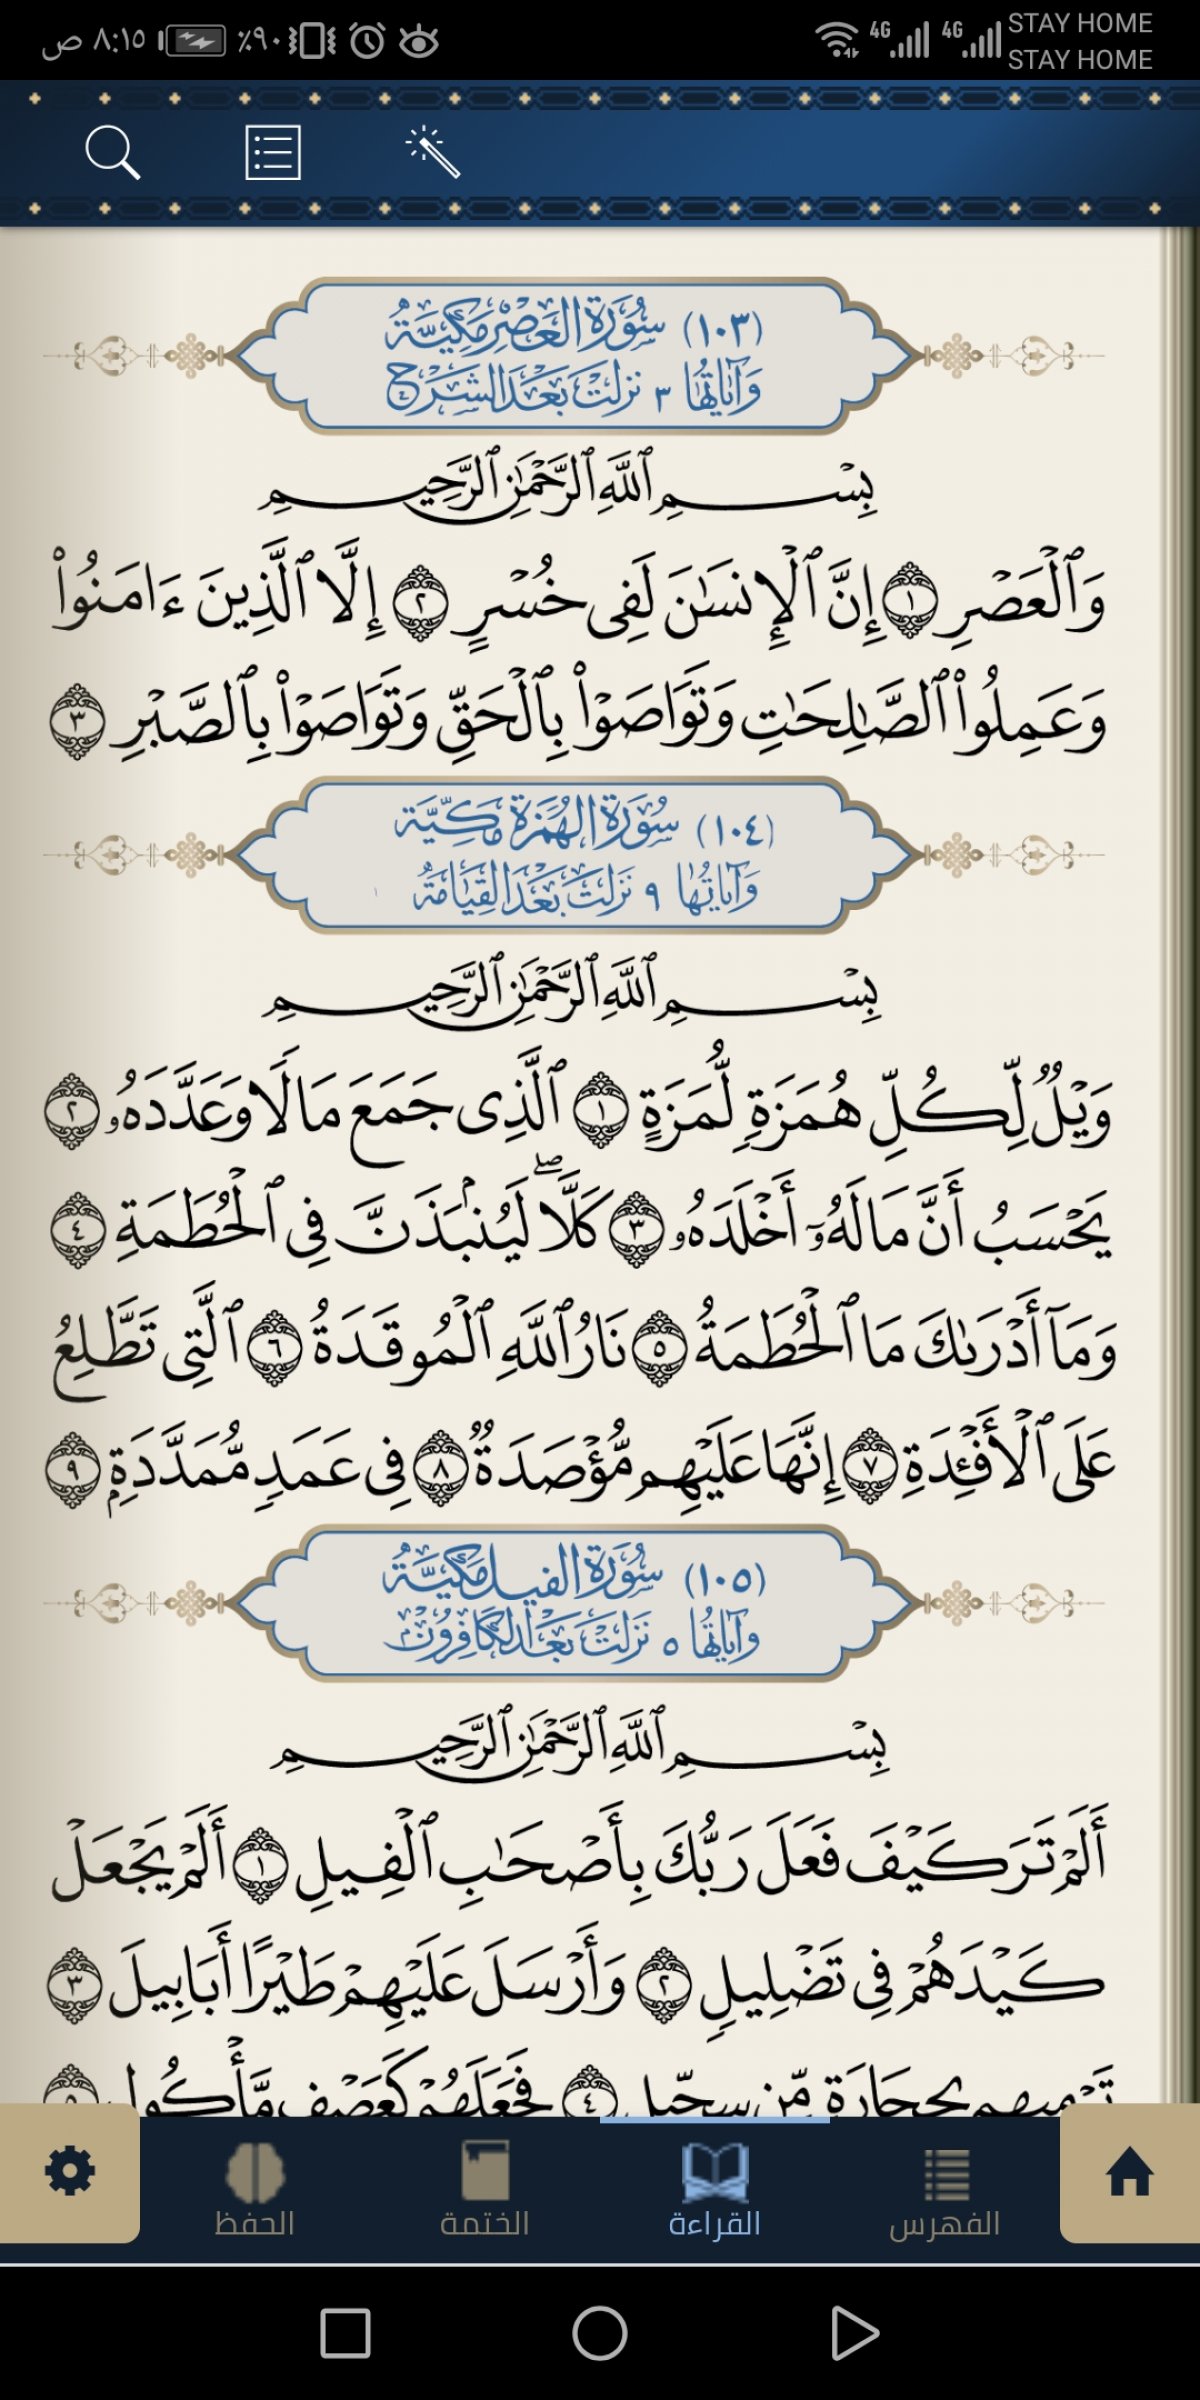 ٨:١٥ ص ٪٩٠ 4G 4G STAY HOME
STAY HOME
(١٠٣) سُورَةُ العَصْرِ مَكِّيَّةٌ
وَآيَاتُهَا ٣ نَزَلَتْ بَعْدَ الشَّرْحِ
بِسْمِ ٱللَّهِ ٱلرَّحْمَٰنِ ٱلرَّحِيمِ
وَٱلْعَصْرِ ١ إِنَّ ٱلْإِنسَٰنَ لَفِى خُسْرٍ ٢ إِلَّا ٱلَّذِينَ ءَامَنُوا۟
وَعَمِلُوا۟ ٱلصَّٰلِحَٰتِ وَتَوَاصَوْا۟ بِٱلْحَقِّ وَتَوَاصَوْا۟ بِٱلصَّبْرِ ٣
(١٠٤) سُورَةُ الهُمَزَةِ مَكِّيَّة
وَآيَاتُهَا ٩ نَزَلَتْ بَعْدَ القِيَامَةِ
بِسْمِ ٱللَّهِ ٱلرَّحْمَٰنِ ٱلرَّحِيمِ
وَيْلٌ لِّكُلِّ هُمَزَةٍ لُّمَزَةٍ ١ ٱلَّذِى جَمَعَ مَالًا وَعَدَّدَهُۥ ٢
يَحْسَبُ أَنَّ مَالَهُۥٓ أَخْلَدَهُۥ ٣ كَلَّا ۖ لَيُنۢبَذَنَّ فِى ٱلْحُطَمَةِ ٤
وَمَآ أَدْرَىٰكَ مَا ٱلْحُطَمَةُ ٥ نَارُ ٱللَّهِ ٱلْمُوقَدَةُ ٦ ٱلَّتِى تَطَّلِعُ
عَلَى ٱلْأَفْـِٔدَةِ ٧ إِنَّهَا عَلَيْهِم مُّؤْصَدَةٌ ٨ فِى عَمَدٍ مُّمَدَّدَةٍۭ ٩
(١٠٥) سُورَةُ الفِيلِ مَكِّيَّةٌ
وَآيَاتُهَا ٥ نَزَلَتْ بَعْدَ الكَافِرُونَ
بِسْمِ ٱللَّهِ ٱلرَّحْمَٰنِ ٱلرَّحِيمِ
أَلَمْ تَرَ كَيْفَ فَعَلَ رَبُّكَ بِأَصْحَٰبِ ٱلْفِيلِ ١ أَلَمْ يَجْعَلْ
كَيْدَهُمْ فِى تَضْلِيلٍ ٢ وَأَرْسَلَ عَلَيْهِمْ طَيْرًا أَبَابِيلَ ٣
تَرْمِيهِم بِحِجَارَةٍ مِّن سِجِّيلٍ ٤ فَجَعَلَهُمْ كَعَصْفٍ مَّأْكُولٍۭ ٥
الفهرس القراءة الختمة الحفظ